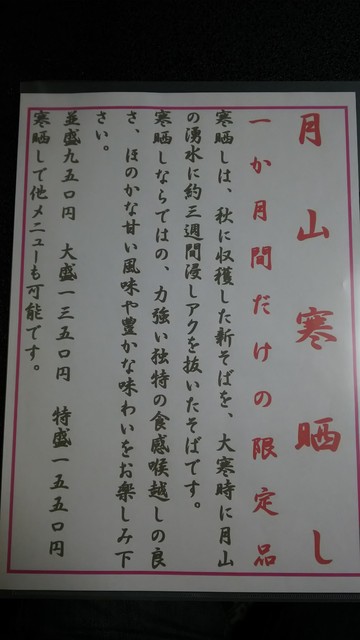 月山寒晒し
一か月間だけの限定品
寒晒しは、秋に収穫した新そばを、大寒時に月山
の湧水に約三週間浸しアクを抜いたそばです。
寒晒しならではの、力強い独特の食感喉越しの良
さ、ほのかな甘い風味や豊かな味わいをお楽しみ下
さい。
並盛九五〇円　大盛一三五〇円　特盛一五五〇円
寒晒しで他メニューも可能です。